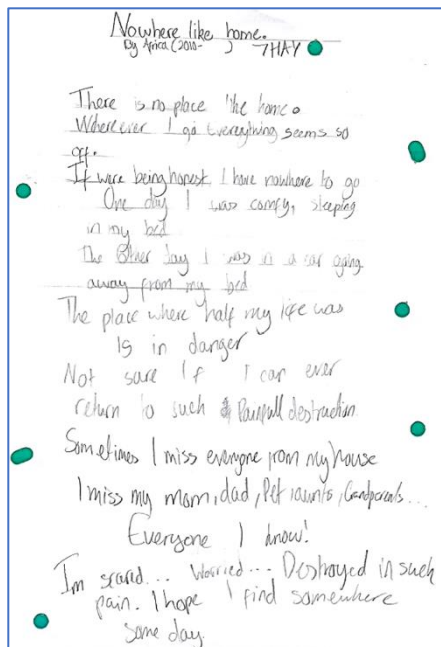 Nowhere like home.
By Africa (2010-     ) 7HAY
There is no place like home.
Whereever I go Everything seems so
off.
If were being honest I have nowhere to go
One day I was comfy, sleeping
in my bed
The Other day I was in a car going
away from my bed
The place where half my life was
Is in danger
Not sure If I can ever
return to such Painfull destruction
Sometimes I miss everyone from my house
I miss my mom, dad, Pet, aunts, Grandparents...
Everyone I know!
Im scared... Worried... Destroyed in such
pain. I hope I find somewhere
some day.